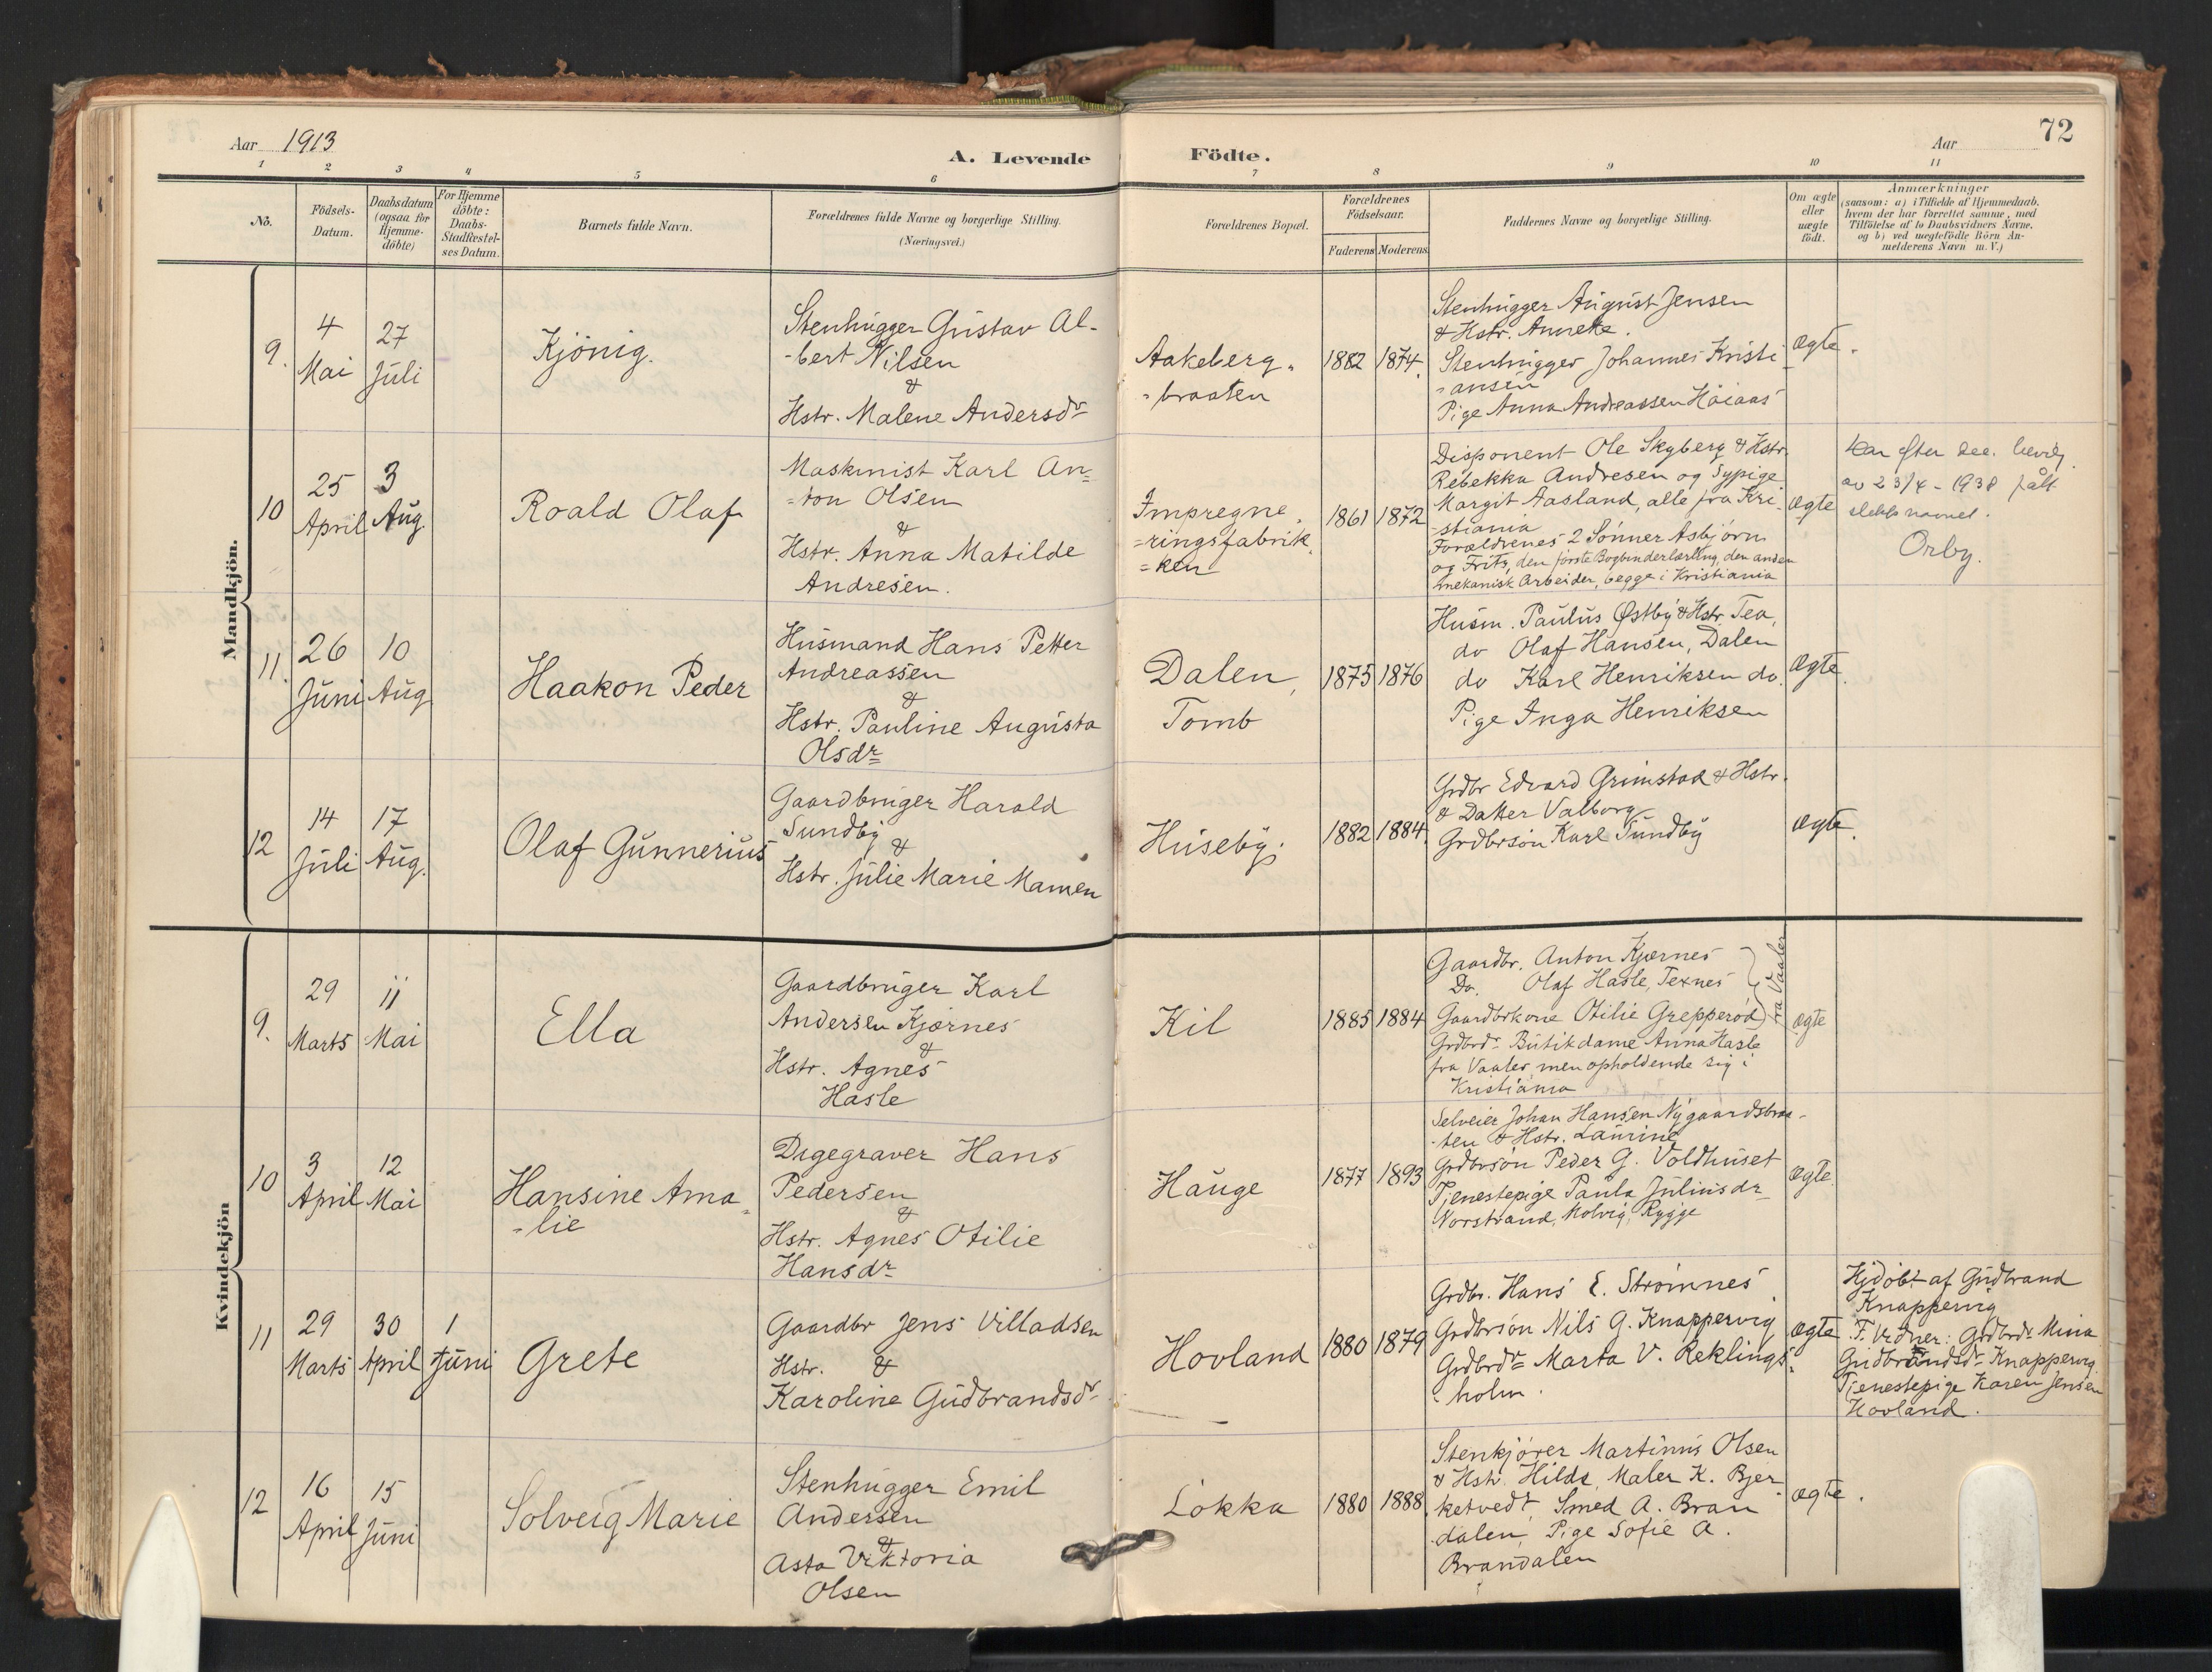 72
Aar 1913
A. Levende Födte.
Aar
1 2 3 4 5 6 7 8 9 10 11
No.
Födsels-
Datum.
Daabsdatum
(ogsaa for
Hjemme-
döbte)
For Hjemme
döbte:
Daabs-
Stadfæstel-
ses Datum.
Barnets fulde Navn.
Forældrenes fulde Navne og borgerlige Stilling.
(Næringsvei.)
Forældrenes Bopæl.
Forældrenes
Födselsaar.
Faderens Moderens
Faddernes Navne og borgerlige Stilling.
Om ægte
eller
uægte
födt.
Anmærkninger
(saasom: a) i Tilfælde af Hjemmedaab,
hvem der har forrettet samme, med
Tilföielse af to Daabsvidners Navne,
og b) ved uægtefödte Börn An-
melderens Navn m. V.)
Mandkjön.
9.
4
Mai
27
Juli
Kjönig.
Stenhugger Gustav Al-
-bert Nilsen
&
Hstr. Malene Andersdr
Aakeberg-
-braaten
1882 1874.
Stenhugger August Jensen
& Hstr. Annete.
Stenhugger Johannes Kristi-
-ansen
Pige Anna Andreassen Höiaas
Ægte.
10
25
April
3
Aug.
Roald Olaf
Maskinist Karl An=
=ton Olsen
&
Hstr. Anna Matilde
Andresen.
Impregne=
=ringsfabrik=
=ken
1861 1872
Disponent Ole Skyberg & Hstr.
Rebekka Andresen og Sypige
Margit Aasland, alle fra Kri-
-stiania
Forældrenes 2 Sønner Asbjørn
og Frits, den første Bogbinderlærling, den anden
mekanisk Arbeider, begge i Kristiania
Ægte
Har efter bevilg.
av 23/4 - 1938 fått
slektsnavnet.
Orby.
11.
26
Juni
10
Aug
Haakon Peder
Husmand Hans Petter
Andreassen
&
Hstr. Pauline Augusta
Olsdr
Dalen,
Tomb
1875 1876
Husm. Paulus Østby & Hstr. Tea,
do Olaf Hansen, Dalen
do Karl Henriksen do.
Pige Inga Henriksen
Ægte.
12
14
Juli
17
Aug.
Olaf Gunnerius
Gaardbruger Harald
Sundby
&
Hstr. Julie Marie Mamen
Huseby.
1882 1884.
Grdbr Edvard Grimstad & Hstr.
& Datter Valborg
Grdbrsøn Karl Sundby
Ægte.
Kvindekjön
9.
29
Marts
11
Mai
Ella
Gaardbruger Karl
Andersen Kjærnes
&
Hstr. Agnes
Hasle
Kil
1885 1884
Gaardbr. Anton Kjærnes
Do. Olaf Hasle, Texnes
Gaardbrkone Otilie Grepperød
fra Vaaler
Grdbrdr Butikdame Anna Hasle
fra Vaaler men opholdende sig i
Kristiania
ægte
10
3
April
12
Mai
Hansine Ama-
-lie
Digegraver Hans
Pedersen
&
Hstr. Agnes Otilie
Hansdr
Hauge
1877 1893
Selveier Johan Hansen Nygaardsbraa-
-ten & Hstr. Laurine
Grdbrsøn Peder G. Voldhuset
Tjenestepige Paula Juliusdr
Norstrand, Molvig, Rygge
Ægte.
11
29
Marts
30
April
1
Juni
Grete
Gaardbr Jens Villadsen
Hstr. &
Karoline Gudbrandsdr
Hovland
1880 1879
Grdbr. Hans E. Strömnes
Grdbrsön Nils G. Knappervig
Grdbrdr Marta V. Reklings-
-holm.
Ægte
Hjdöbt af Gudbrand
Knappervig
F. Vidner: Grdbrdr Mina
Gudbrandsdr Knappervig
Tjenestepige Karen Jensen
Hovland.
12
16
April
15
Juni
Solveig Marie
Stenhugger Emil
Andersen
&
Asta Viktoria
Olsen
Løkka
1880 1888
Stenkjører Martinus Olsen
& Hstr. Hilda, Maler K. Bjer-
ketvedt, Smed A. Bran
dalen, Pige Sofie A.
Brandalen
Ægte.